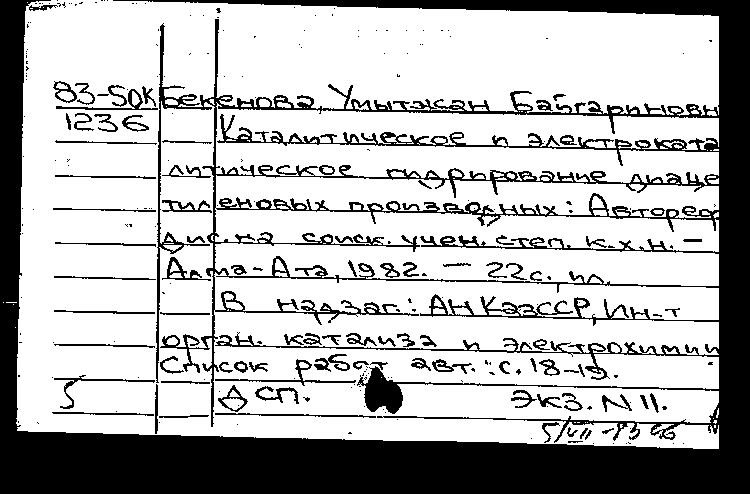 83-50К Бекенова, Умытжан Байгариновн
1236 Каталитическое и электроката
литическое гидрирование диаце
тиленовых производных: Автореф
дис. на соиск. учен. степ. к.х.н. —
Алма-Ата, 1982. — 22с., ил.
В надзаг.: АН КазССР, Ин-т
орган. катализа и электрохимии
Список работ авт.: с. 18-19.
5 ДСП. Экз. N 11.
5/VII-83